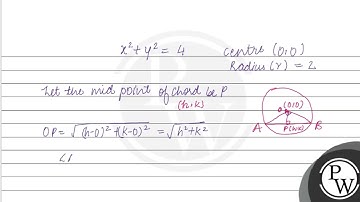 x² + y² = 4 centre (0,0)
Radius (r) = 2
Let the mid point of chord be P
(h,k)
OP = √(h-0)² + (k-0)² = √h² + k²
O (0,0)
A P(h,k) B
∠
PW